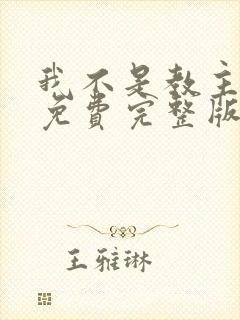 我不是教主
免费完整版
王雅琳